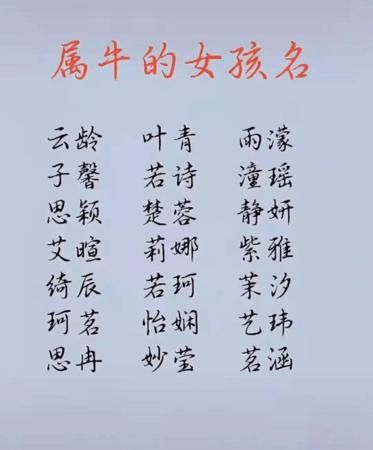 属牛的女孩名
云龄 叶青 雨濛
子馨 若诗 潼瑶
思颖 楚蓉 静妍
艾暄 莉娜 紫雅
绮辰 若珂 茉汐
珂茗 怡娴 艺玮
思冉 妙莹 茗涵